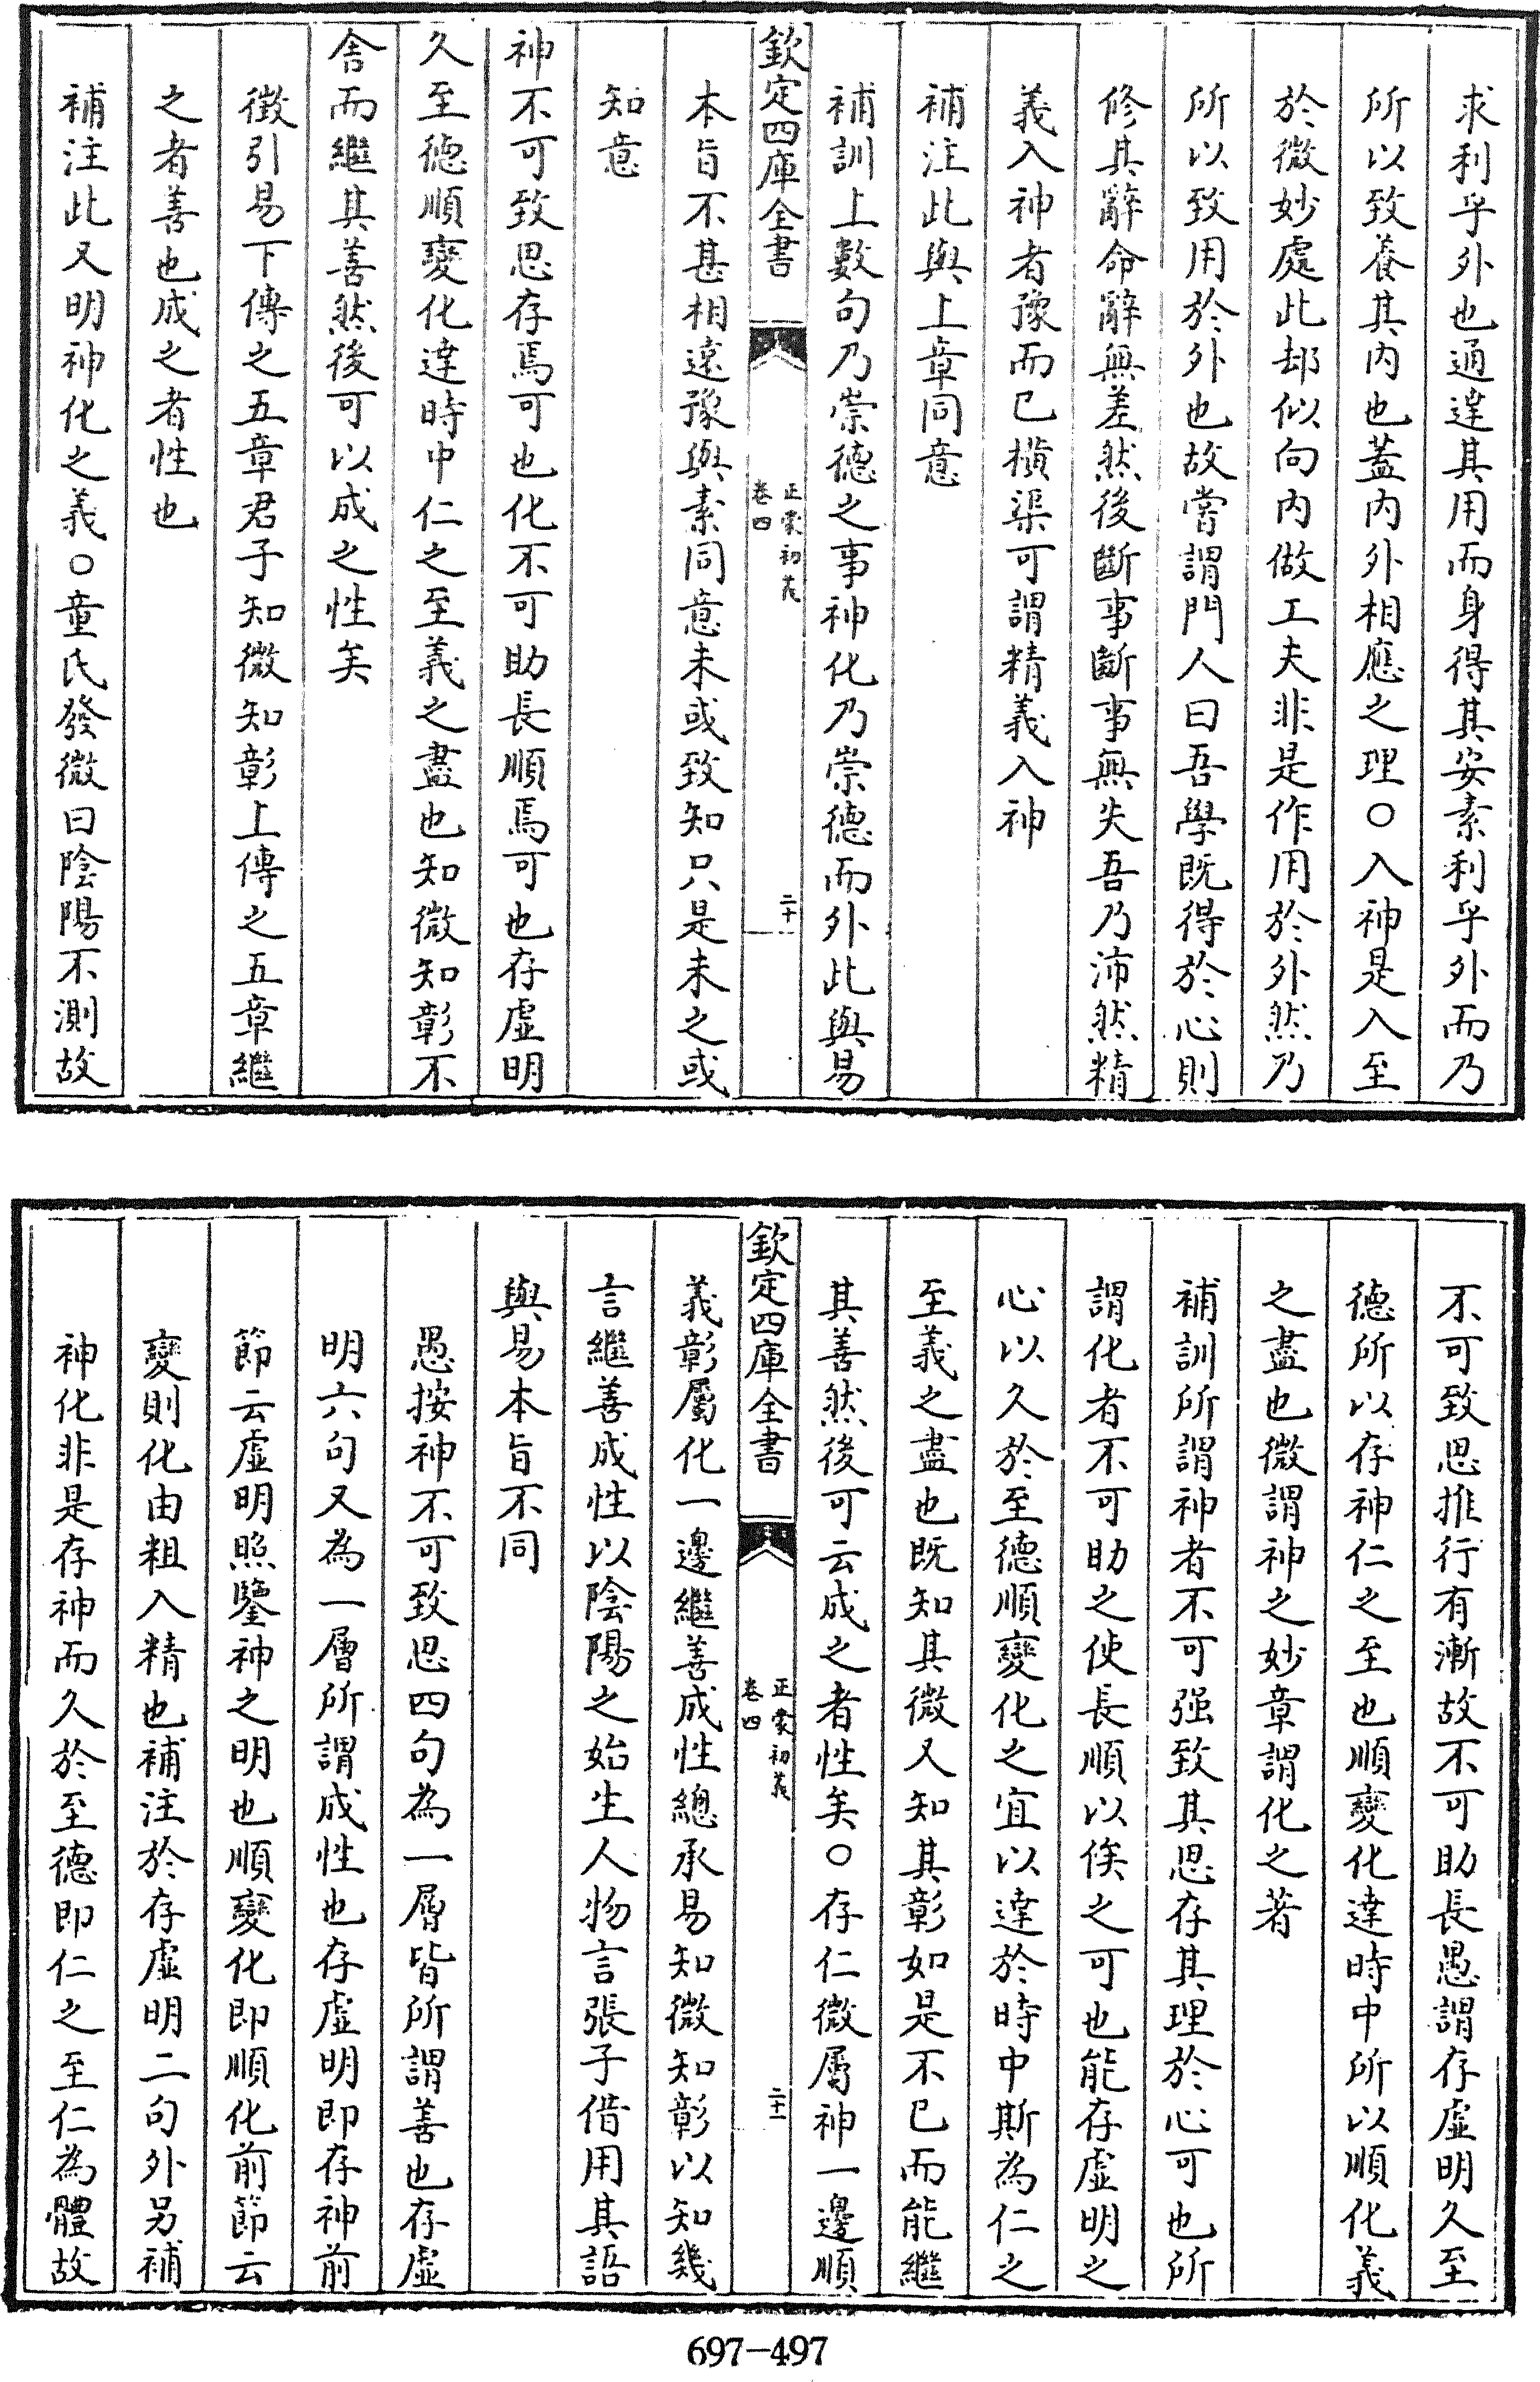 求利乎外也通達其用而身得其安素利乎外而乃
所以致養其内也蓋内外相應之理○入神是入至
於微妙處此却似向内做工夫非是作用於外然乃
所以致用於外也故嘗謂門人曰吾學既得於心則
修其辭命辭無差然後斷事斷事無失吾乃沛然精
義入神者豫而已橫渠可謂精義入神
補注此與上章同意
補訓上數句乃崇德之事神化乃崇德而外此與易
欽定四庫全書
正蒙初義
卷四
二十
本旨不甚相遠豫與素同意未或致知只是未之或
知意
神不可致思存焉可也化不可助長順焉可也存虛明
久至德順變化達時中仁之至義之盡也知微知彰不
舍而繼其善然後可以成之性矣
徵引易下傳之五章君子知微知彰上傳之五章繼
之者善也成之者性也
補注此又明神化之義○童氏發微曰陰陽不測故
不可致思推行有漸故不可助長愚謂存虛明久至
德所以存神仁之至也順變化達時中所以順化義
之盡也微謂神之妙章謂化之著
補訓所謂神者不可强致其思存其理於心可也所
謂化者不可助之使長順以俟之可也能存虛明之
心以久於至德順變化之宜以達於時中斯為仁之
至義之盡也既知其微又知其彰如是不已而能繼
其善然後可云成之者性矣○存仁微屬神一邊順
欽定四庫全書
正蒙初義
卷四
二十一
義彰屬化一邊繼善成性總承易知微知彰以知幾
言繼善成性以陰陽之始生人物言張子借用其語
與易本旨不同
愚按神不可致思四句為一層皆所謂善也存虛
明六句又為一層所謂成性也存虛明即存神前
節云虛明照鑒神之明也順變化即順化前節云
變則化由粗入精也補注於存虛明二句外另補
神化非是存神而久於至德即仁之至仁為體故
697-497